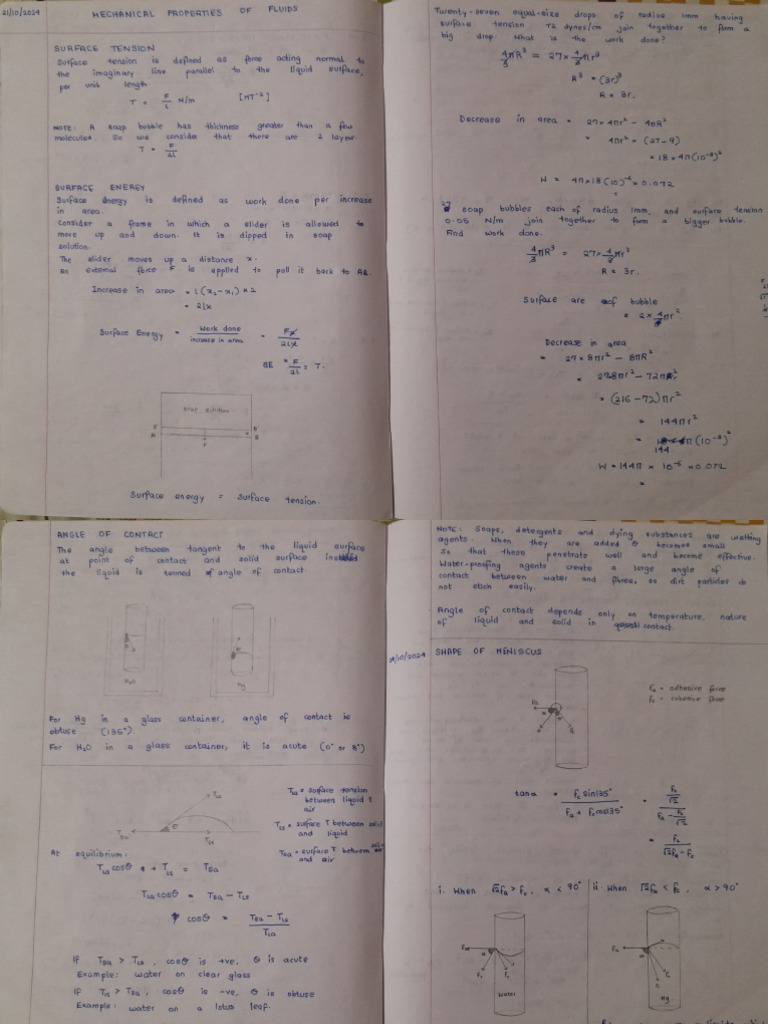 21/10/2024
MECHANICAL PROPERTIES OF FLUIDS
SURFACE TENSION
Surface tension is defined as force acting normal to
the imaginary line parallel to the liquid surface,
per unit length
T = F/l N/m [MT⁻²]
NOTE: A soap bubble has thickness greater than a few
molecules. So we consider that there are 2 layers.
T = F/2l
SURFACE ENERGY
Surface Energy is defined as work done per increase
in area.
Consider a frame in which a slider is allowed to
move up and down. It is dipped in soap
solution.
The slider moves up a distance x.
An external force F is applied to pull it back to AB.
Increase in area = l(x₂-x₁) × 2
= 2lx
Surface Energy = Work done/increase in area = Fx/2lx
SE = F/2l = T.
soap solution
A
B
F
Surface energy = Surface tension.
Twenty-seven equal-size drops of radius 1mm having
surface tension 72 dynes/cm join together to form a
big drop. What is the work done?
4/3 πR³ = 27 × 4/3 πr³
R³ = (3r)³
R = 3r.
Decrease in area = 27×4πr² - 4πR²
= 4πr² = (27-9)
= 18×4π(10⁻³)²
W = 4π×18(10)⁻⁶×0.072
27 soap bubbles each of radius 1mm, and surface tension
0.05 N/m join together to form a bigger bubble.
Find work done.
4/3 πR³ = 27×4/3 πr³
R = 3r.
Surface are of bubble
= 2×4πr²
Decrease in area
= 27×8πr² - 8πR²
= 27.8πr² - 72πr²
= (216-72)πr²
= 144πr²
= 144 π(10⁻³)²
W = 144π × 10⁻⁶ × 0.072
=
ANGLE OF CONTACT
The angle between tangent to the liquid surface
at point of contact and solid surface inside
the liquid is termed angle of contact.
H₂O
Hg
For Hg in a glass container, angle of contact is
obtuse (135°).
For H₂O in a glass container, it is acute (0° or 8°)
T_LA
θ
T_SA
T_LS
T_LA = surface tension
between liquid &
air
T_LS = surface T between solid
and liquid
T_SA = surface T between solid
and air
At equilibrium:
T_LA cosθ + T_LS = T_SA
T_LA cosθ = T_SA - T_LS
cosθ = (T_SA - T_LS)/T_LA
If T_SA > T_LS, cosθ is +ve, θ is acute
Example: water on clear glass
If T_LS > T_SA, cosθ is -ve, θ is obtuse
Example: water on a lotus leaf.
NOTE: Soaps, detergents and dying substances are wetting
agents. When they are added θ becomes small
so that these penetrate well and become effective.
Water-proofing agents create a large angle of
contact between water and fibres, so dirt particles do
not etich easily.
Angle of contact depends only on temperature, nature
of liquid and solid in contact.
SHAPE OF MENISCUS
Fₐ = adhesive force
f_c = cohesive force
tanα = f_c sin135°/(Fₐ + f_c cos135°) = (f_c/√2)/(fₐ - f_c/√2)
= f_c/(√2fₐ - f_c)
i. When √2fₐ > f_c, α < 90°
ii. When √2fₐ < f_c, α > 90°
water
Hg